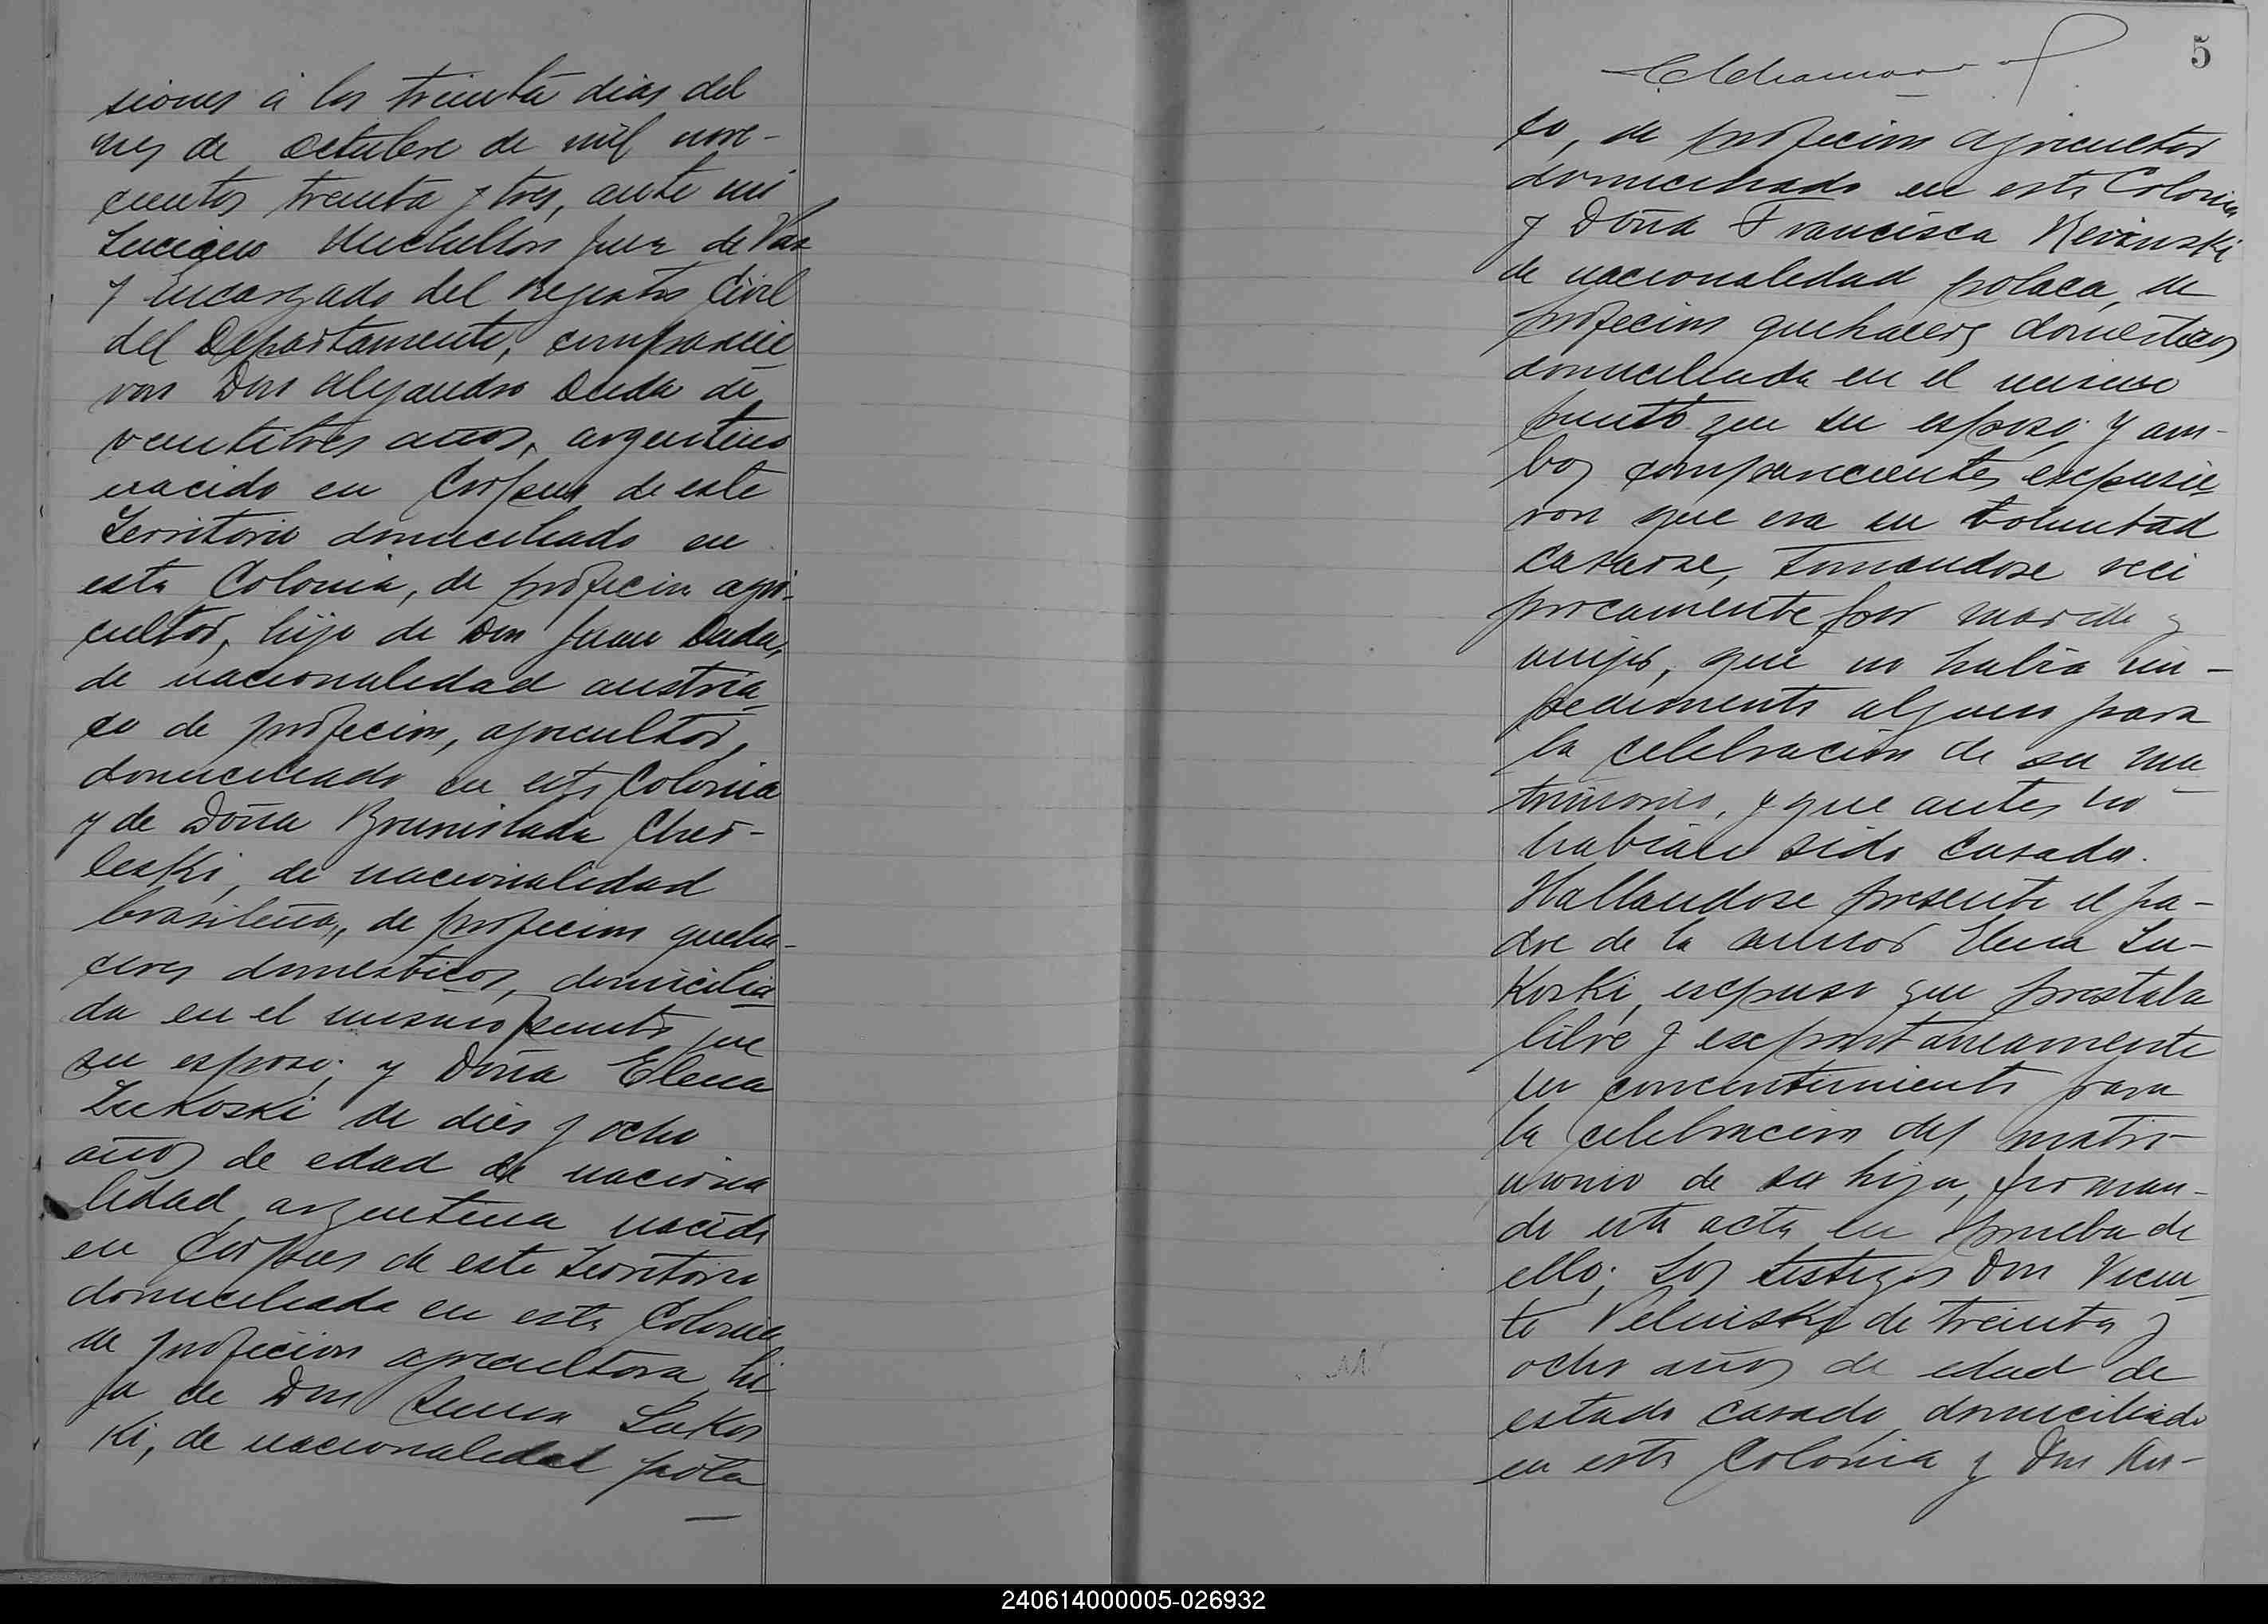 siones á los treinta dias del
mes de Octubre de mil nove-
cientos treinta y tres, ante mi
Juez de Paz
y Encargado del Registro Civil
del Departamento, comparecie
ron Don Alejandro Duda de
veintitres años, argentino
nacido en Corpus de este
Territorio domiciliado en
esta Colonia, de profecion agri-
cultor, hijo de Don Juan Duda,
de nacionalidad austria
co de profecion, agricultor,
domiciliado en esta Colonia
y de Doña Brunislada Cher-
leski, de nacionalidad
brasileña, de profecion queha-
ceres domesticos, domicilia
da en el mismo punto que
su esposo; y Doña Elena
Lukoski de dies y ocho
años de edad de naciona
lidad argentina nacida
en Corpus de este Territorio
domiciliada en esta Colonia
de profecion agricultora hi
ja de Don Lukos
ki, de nacionalidad pola
5
co, de profecion agricultor
domiciliado en esta Colonia
y Doña Francisca Kevinski
de nacionalidad polaca, de
profecion quehaceres domesticos
domiciliada en el mismo
punto que su esposo; y am-
bos comparecientes expusie
ron que era su voluntad
casarse, tomandose reci
procamente por marido y
mujer, que no habia im-
pedimento alguno para
la celebracion de su ma
trimonio, y que antes no
habian sido casados.
Hallandose presente el pa-
dre de la menor Elena Lu-
koski, expuso que prestaba
libre y expontaneamente
su concentimiento para
la celebracion del matri-
monio de su hija, firman-
do esta acta en prueba de
ello; Los testigos Don Vicen
te Veluiski de treinta y
ocho años de edad de
estado casado domiciliado
en esta Colonia y Don
240614000005-026932